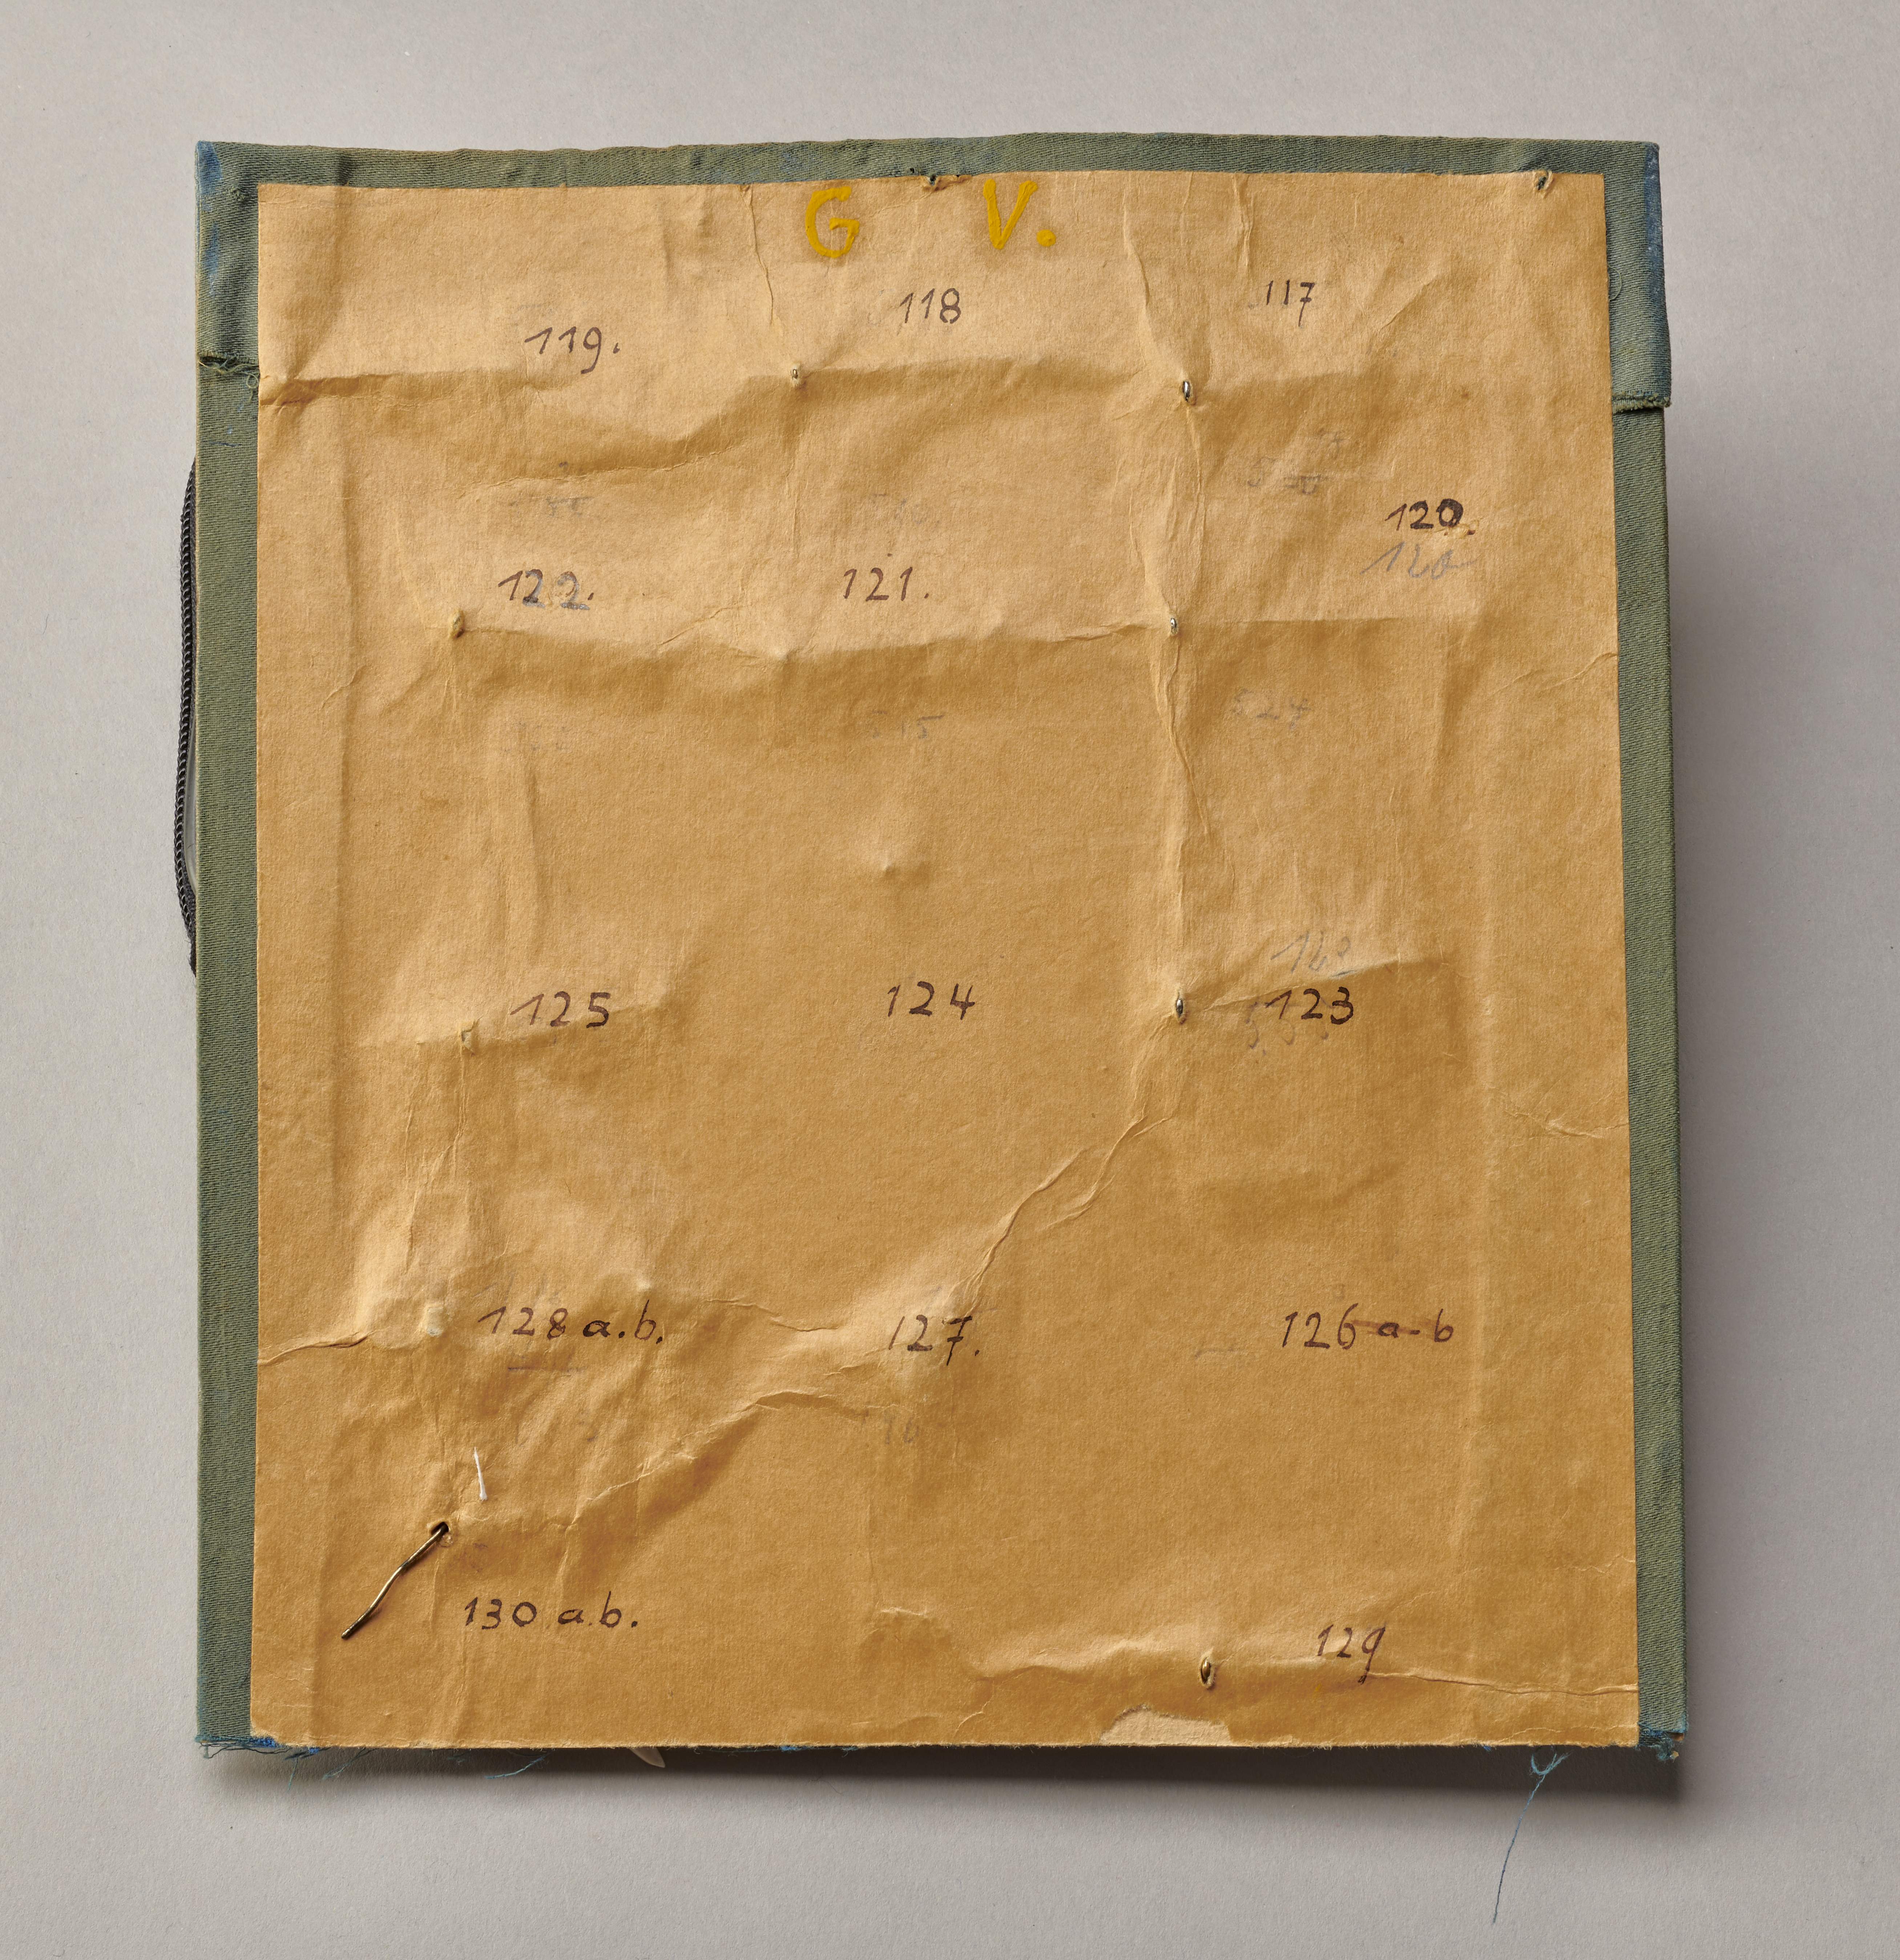 G V.
119. 118 117
120.
120
122. 121.
515 527
123
125 124 123
128 a.b. 127. 126 a-b
130 a.b. 129